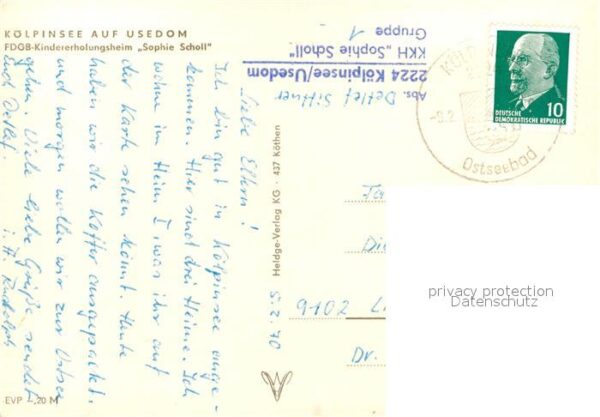 KÖLPINSEE AUF USEDOM
FDGB-Kindererholungsheim „Sophie Scholl"
5. 2. 70
Liebe Eltern!
Ich bin gut in Kölpinsee ange-
kommen. Hier sind drei Heime. Ich
wohne im Heim I, was ihr auf
der Karte sehen könnt. Heute
haben wir die Koffer ausgepackt.
und morgen wollen wir zur Ostsee
gehen. Viele liebe Grüße sendet
Euch Detlef.
i. A. Rudolph
EVP –,20 M
Heldge-Verlag KG · 437 Köthen
Abs. Detlef Sittner
2224 Kölpinsee/Usedom
KKH „Sophie Scholl"
Gruppe 1
DEUTSCHE
DEMOKRATISCHE REPUBLIK
10
Ostseebad
9102
Dr.
privacy protection
Datenschutz